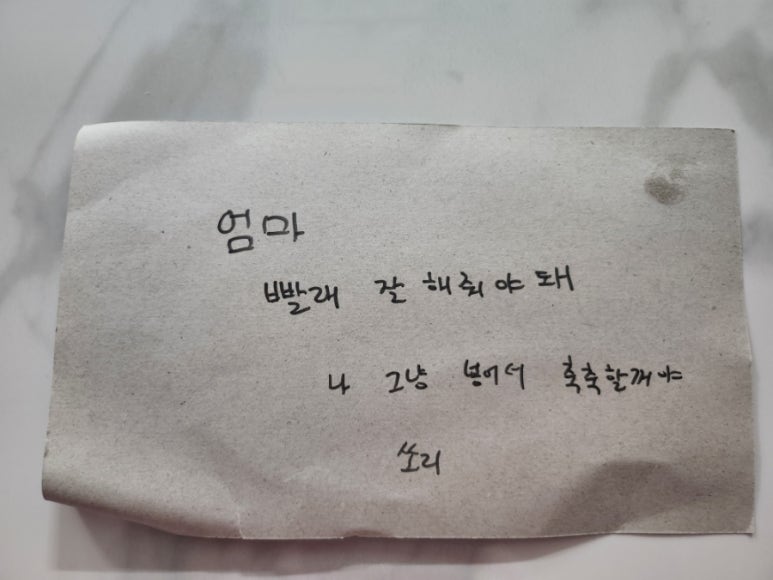 엄마
빨래 잘 해줘야 돼
나 그냥 벗어서 축축할꺼야
쏘리